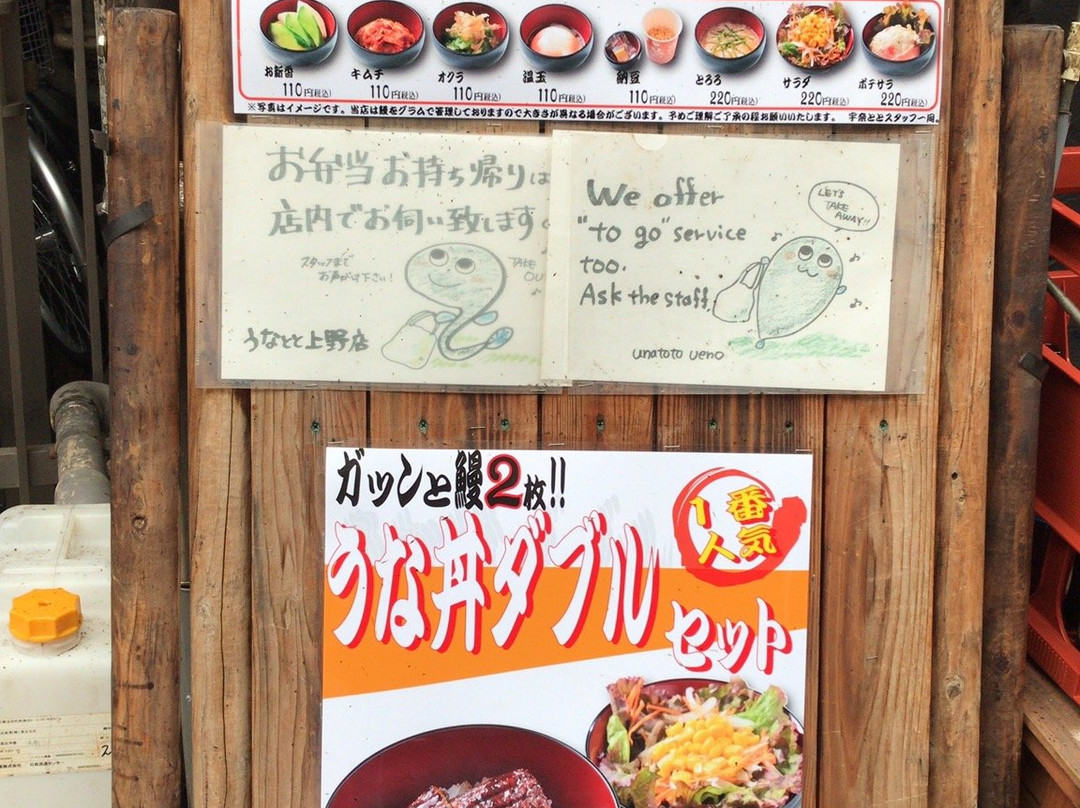 お新香 キムチ オクラ 温玉 納豆 とろろ サラダ ポテサラ
110円(税込) 110円(税込) 110円(税込) 110円(税込) 110円(税込) 220円(税込) 220円(税込) 220円(税込)
※写真はイメージです。当店は鰻をグラムで管理しておりますので大きさが異なる場合がございます。予めご理解ご了承の程お願いいたします。 宇奈ととスタッフ一同。
お弁当お持ち帰りは
店内でお伺い致します。
スタッフまで
お声がけ下さい!
TAKE
OU
うなとと上野店
We offer
"to go" service
too.
Ask the staff.
LET'S
TAKE
AWAY!!
unatoto ueno
ガッツンと鰻2枚!!
1番
人気
うな丼ダブル
セット